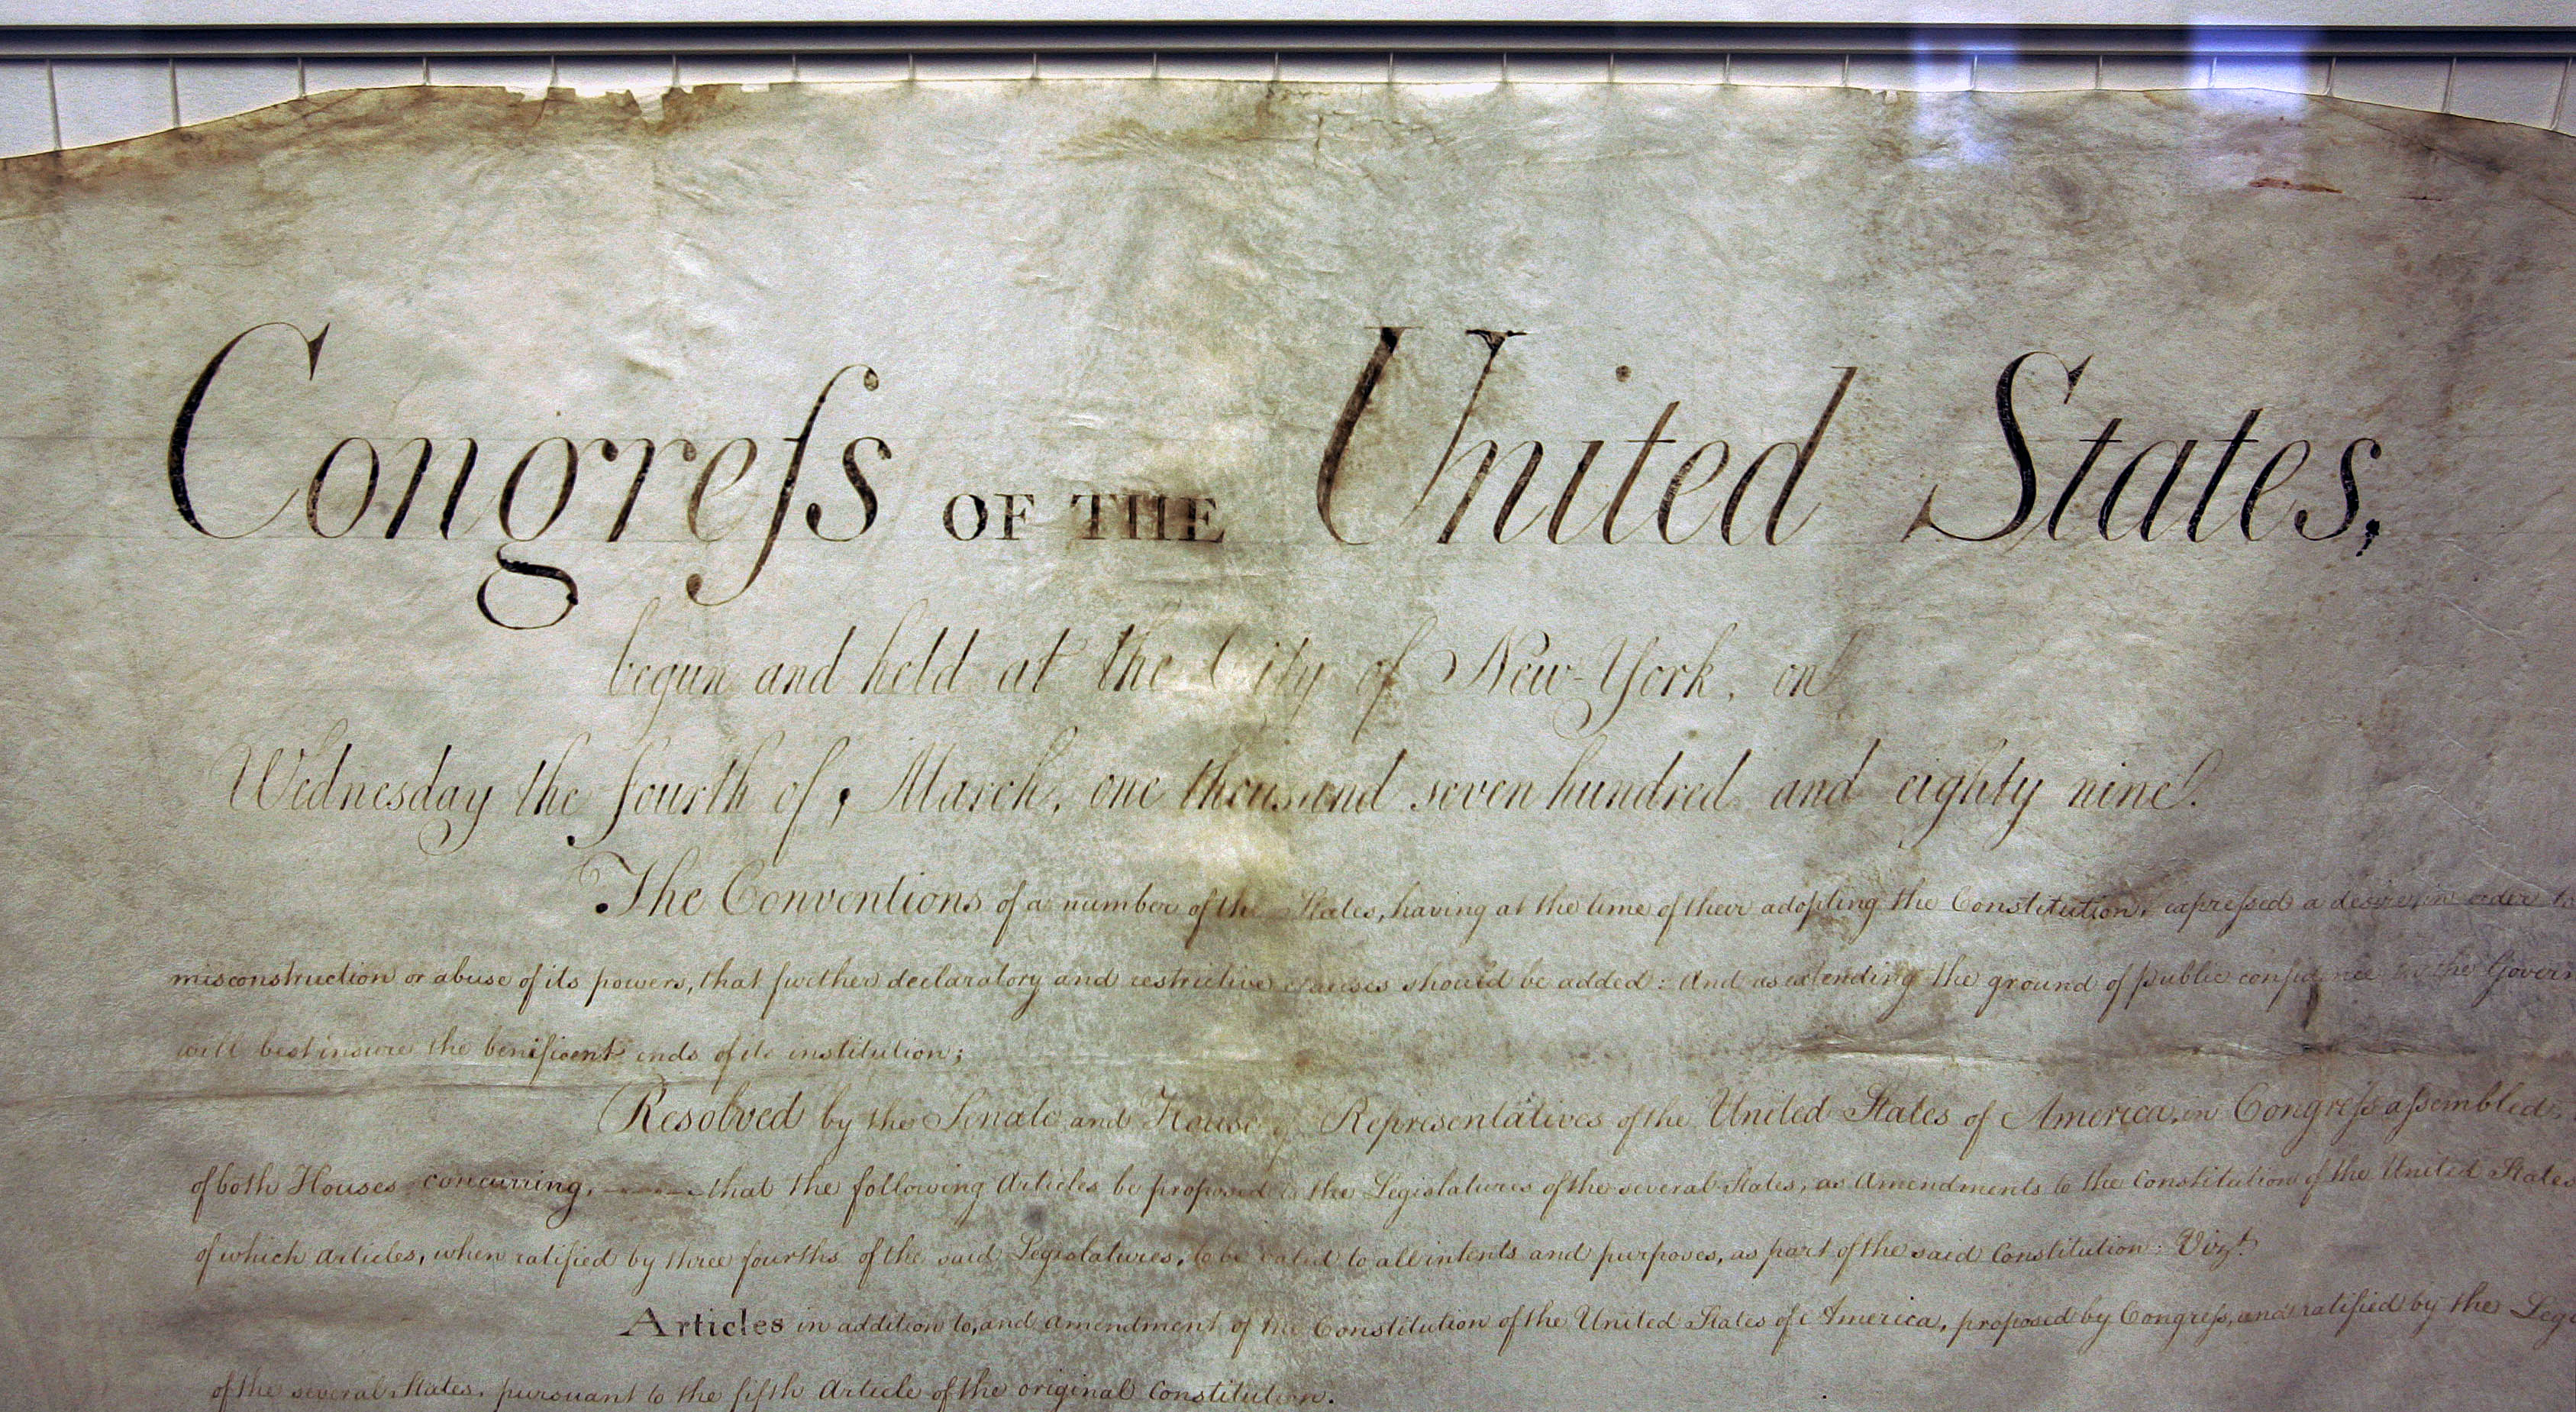 Congreſs OF THE United States,
begun and held at the City of New-York, on
Wednesday the fourth of March, one thousand seven hundred and eighty nine.
The Conventions of a number of the States, having at the time of their adopting the Constitution, expreſsed a desire, in order to
misconstruction or abuse of its powers, that further declaratory and restrictive clauses should be added: And as extending the ground of public confidence in the Govern
will best insure the benificent ends of its institution;
Resolved by the Senate and House of Representatives of the United States of America, in Congreſs aſsembled,
of both Houses concurring, that the following Articles be proposed to the Legislatures of the several States, as Amendments to the Constitution of the United States
of which Articles, when ratified by three fourths of the said Legislatures, to be valid to all intents and purposes, as part of the said Constitution; Vizt.
Articles in addition to, and amendment of the Constitution of the United States of America, proposed by Congreſs, and ratified by the Legi
of the several States, pursuant to the fifth Article of the original Constitution.